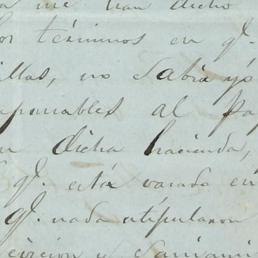 me han dicho
los términos en q.
illas, no sabia yo
sponsables al pa
en dicha hacienda,
q. está vasada en
q. nada estipularon
eviccion y saneami